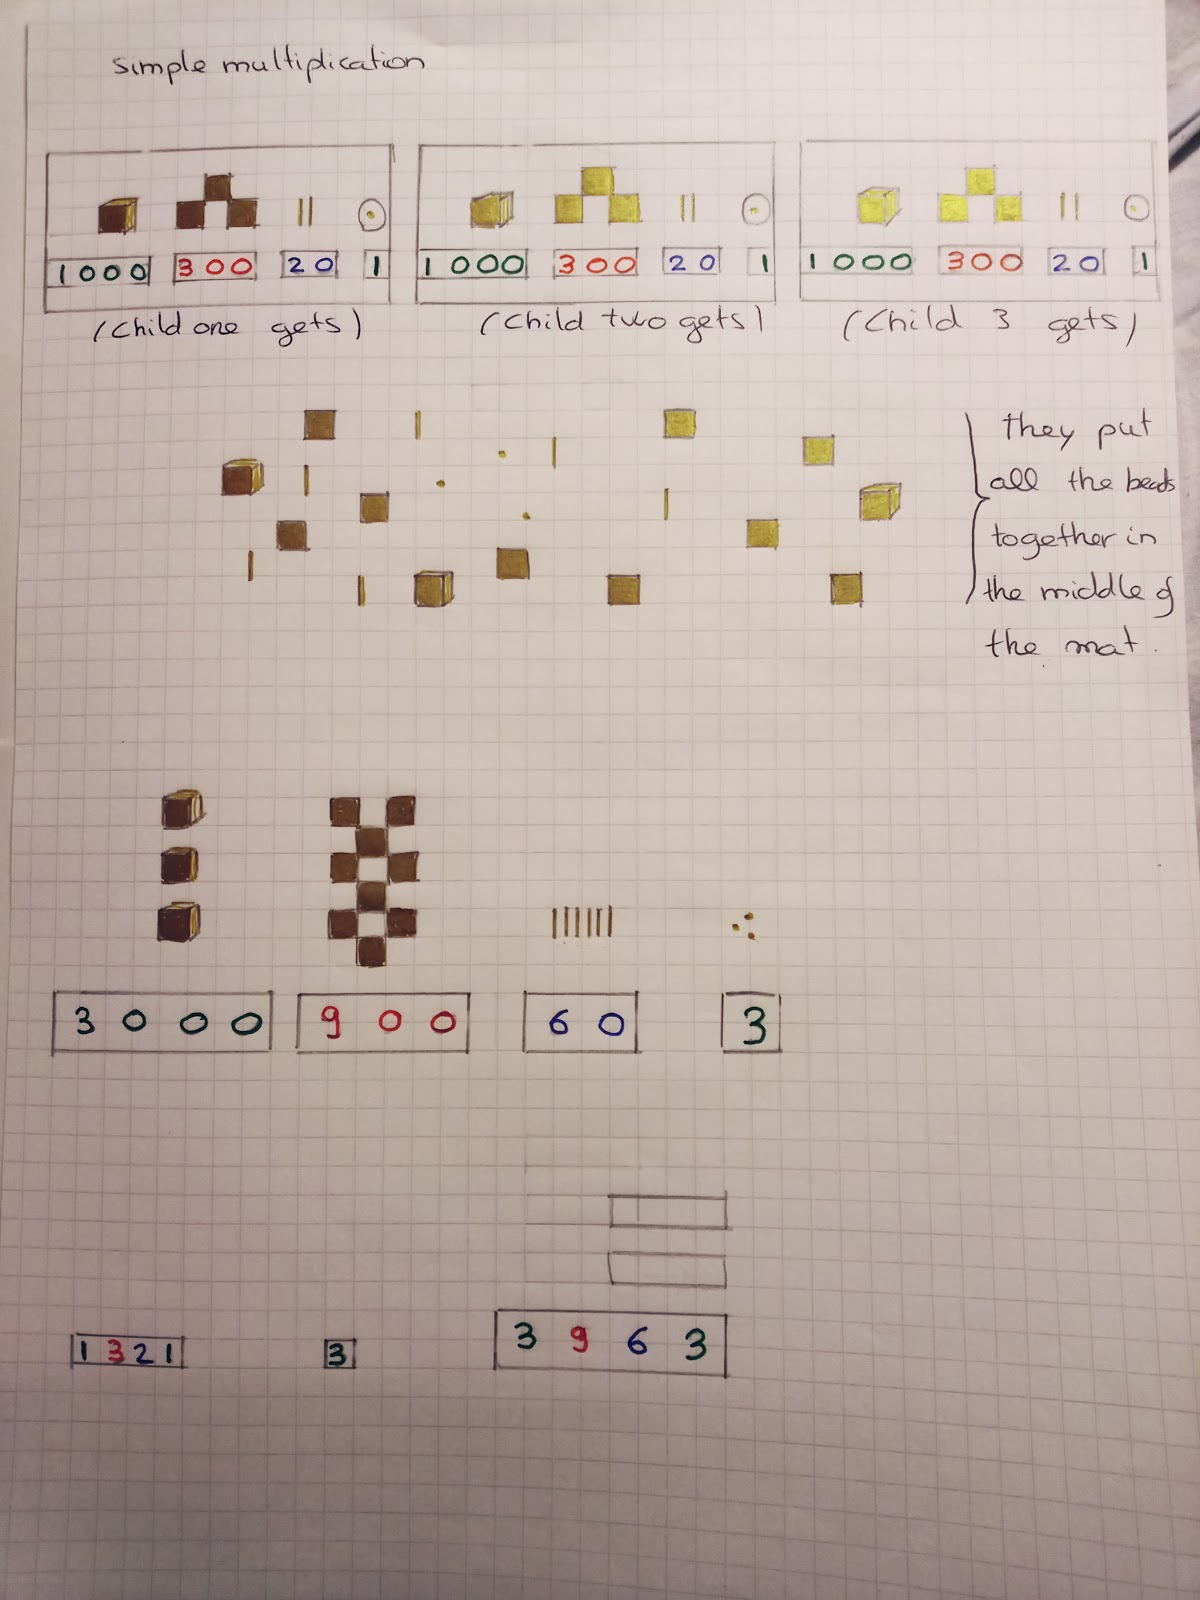 simple multiplication
1000 300 20 1 1000 300 20 1 1000 300 20 1
(Child one gets) (Child two gets) (Child 3 gets)
they put
all the beads
together in
the middle of
the mat.
3000 900 60 3
1321 3 3963